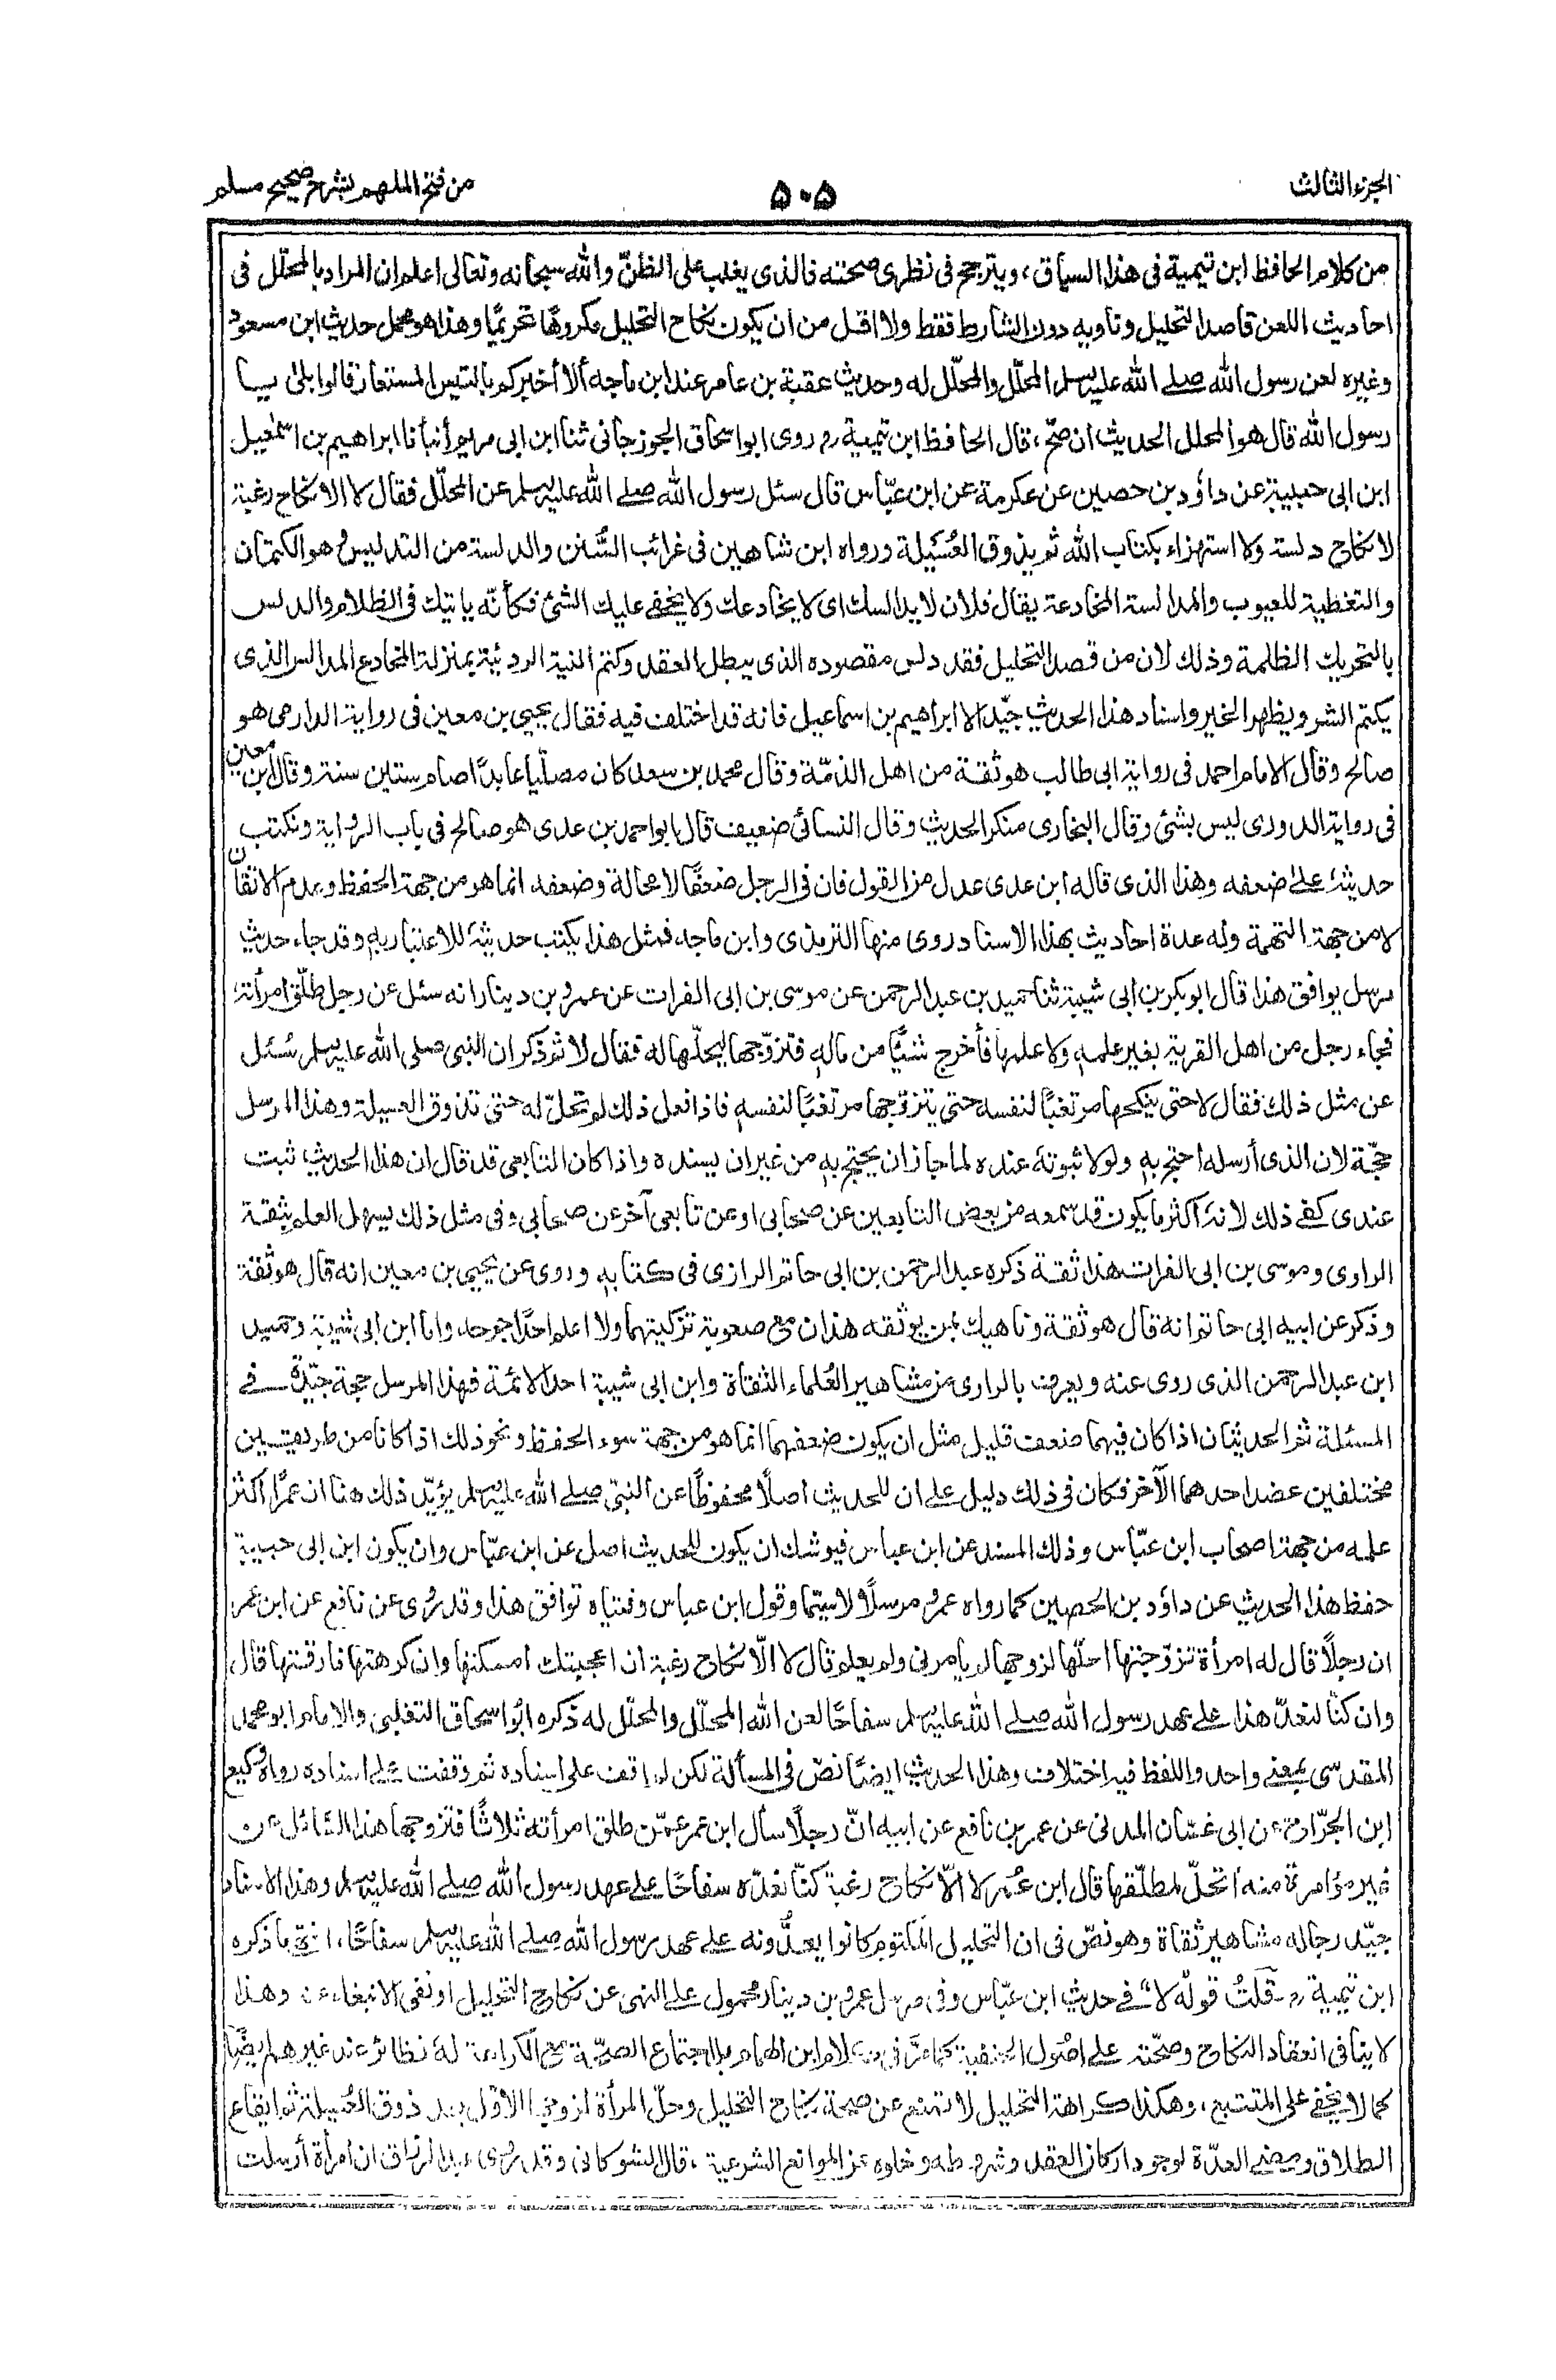 الجزء الثالث
٥٠٥
من فتح الملهم بشرح صحيح مسلم
من كلام الحافظ ابن تيمية فى هذا السياق، ويترجح فى نظرى صحته فالذى يغلب على الظنّ والله سبحانه وتعالى اعلم ان المراد بالمحلّل فى
احاديث اللعن قاصد التحليل وناويه دون الشارط فقط ولا اقل من ان يكون نكاح التحليل مكروهًا تحريمًا وهذا هو محمل حديث ابن مسعود
وغيره لعن رسول الله صلے الله عليه وسلم المحلّل والمحلّل له وحديث عقبة بن عامر عند ابن ماجه ألا أخبركم بالتيس المستعار قالوا بلىٰ يا
رسول الله قال هو المحلل الحديث ان صحّ، قال الحافظ ابن تيمية رح روى ابو اسحاق الجوزجانى ثنا ابن ابى مريم أنبأنا ابراهيم بن اسمٰعيل
ابن ابى حبيبة عن داؤد بن حصين عن عكرمة عن ابن عبّاس قال سئل رسول الله صلے الله عليه وسلم عن المحلّل فقال لا الا نكاح رغبة
لا نكاح دلسة ولا استهزاء بكتاب الله ثم يذوق العُسَيلة ورواه ابن شاهين فى غرائب السُّنن والدلسة من التدليس وهو الكتمان
والتغطية للعيوب والمدالسة المخادعة يقال فلان لا يدالسك اى لا يخادعك ولا يخفے عليك الشئ فكأنّه ياتيك فى الظلام والدلس
بالتحريك الظلمة وذلك لان من قصد التحليل فقد دلس مقصوده الذى يبطل العقد وكتم النية الردئية بمنزلة المخادع المدالس الذى
يكتم الشر ويظهر الخير واسناد هذا الحديث جيّد الا ابراهيم بن اسماعيل فانه قد اختلف فيه فقال يحيى بن معين فى رواية الدارمى هو
صالح وقال الامام احمد فى رواية ابى طالب هو ثقة من اهل الذمّة وقال محمد بن سعد كان مصلّيا عابدًا صام ستين سنة وقال ابن معين
فى رواية الدورى ليس بشئ وقال البخارى منكر الحديث وقال النسائى ضعيف قال ابو احمد بن عدى هو صالح فى باب الرواية ونكتب
حديثهٗ علىٰ ضعفه وهذا الذى قاله ابن عدى عدل من القول فان فى الرجل ضعفًا لا محالة وضعفه انما هو من جهة الحفظ وعدم الاتقان
لا من جهة التهمة وله عدة احاديث بهذا الاسناد روى منها الترمذى وابن ماجه، فمثل هذا يكتب حديثهٗ للاعتبار بهٖ وقد جاء حديث
مرسل يوافق هذا قال ابو بكر بن ابى شيبة ثنا حميد بن عبد الرحمن عن موسى بن ابى الفرات عن عمرو بن دينار انه سئل عن رجل طلّق امرأتهٗ
فجاء رجل من اهل القرية بغير علمهٖ ولا علمها فأخرج شيئًا من مالهٖ فتزوّجها ليحلّها له فقال لا ثم ذكر ان النبى صلى الله عليه وسلم سُئل
عن مثل ذلك فقال لا حتى ينكحها مرتغبًا لنفسه حتى يتزوّجها مرتغبًا لنفسهٖ فاذا فعل ذلك لم تحلّ له حتىٰ تذوق العسيلة وهذا المرسل
حجّة لان الذى أرسله احتج بهٖ ولولا ثبوتهٗ عنده لما جاز ان يحتج بهٖ من غير ان يسنده واذا كان التابعى قد قال ان هذا الحديث ثبت
عندى كفے ذلك لانهٗ اكثر ما يكون قد سمعه من بعض التابعين عن صحابى او عن تابعى آخر عن صحابى وفى مثل ذلك يسهل العلم بثقة
الراوى وموسى بن ابى الفرات هذا ثقة ذكره عبد الرحمٰن بن ابى حاتم الرازى فى كتابهٖ وروى عن يحيى بن معين انه قال هو ثقة
وذكر عن ابيه ابى حاتم انه قال هو ثقة وناهيك بمن يوثقه هذان مع صعوبة تزكيتهما ولا اعلم احدًا جرحه، واما ابن ابى شيبة وحميد
ابن عبد الرحمن الذى روى عنه ويعرف بالراوى من مشاهير العُلماء الثقاة وابن ابى شيبة احد الائمة فهذا المرسل حجة جيّدة فے
المسئلة ثم الحديثان اذا كان فيهما ضعف قليل مثل ان يكون ضعفهما انما هو من جهة سوء الحفظ ونحو ذلك اذا كانا من طريقين
مختلفين عضد احدهما الآخر فكان فى ذلك دليل علے ان للحديث اصلًا محفوظًا عن النبىّ صلے الله عليه وسلم يؤيّد ذلك هنا ان عمرًا اكثر
علمه من جهة اصحاب ابن عبّاس وذلك المسند عن ابن عباس فيوشك ان يكون للحديث اصل عن ابن عبّاس وان يكون ابن ابى حبيبة
حفظ هذا الحديث عن داؤد بن الحصين كما رواه عمرو مرسلًا لا سيّما وقول ابن عباس وفتياه توافق هذا وقد رُوى عن نافع عن ابن عمر
ان رجلًا قال له امرأة تزوّجتها احلّها لزوجها لم يامرنى ولم يعلم قال لا الّا نكاح رغبة ان اعجبتك امسكتها وان كرهتها فارقتها قال
وان كنّا لنعدّ هذا علے عهد رسول الله صلے الله عليه وسلم سفاحًا لعن الله المحلّل والمحلّل له ذكره ابو اسحاق التغلبى والامام ابو محمد
المقدسى بمعنے واحد واللفظ فيه اختلاف وهذا الحديث ايضًا نصّ فى المسألة لكن لم اقف على اسناده ثم وقفت علے اسناده رواه وكيع
ابن الجرّاح عن ابى غسّان المدنى عن عمر بن نافع عن ابيه انّ رجلًا سأل ابن عمر عمّن طلق امرأته ثلاثًا فتزوجها هذا السائل عن
غير مؤامرة منه أتحلّ لمطلّقها قال ابن عُمر لا الّا نكاح رغبة كنّا نعدّه سفاحًا علے عهد رسول الله صلے الله عليه وسلم وهذا الاسناد
جيّد رجاله مشاهير ثقاة وهو نصّ فى ان التحليل المكتوم كانوا يعدُّونه علے عهد رسول الله صلے الله عليه وسلم سفاحًا، انتهىٰ ما ذكره
ابن تيمية رح قلتُ قوله "لا" فے حديث ابن عبّاس وفى مرسل عمرو بن دينار محمول على النهى عن نكاح التحليل او نفى الانبغاء عنه وهذا
لا ينافى انعقاد النكاح وصحّته علے اصول الحنفية كما مرّ فى كلام ابن الهمام اجتماع الصحّة مع الكراهة لهٗ نظائر عند غيرهم ايضًا
كما لا يخفے على المتتبع، وهكذا كراهة التحليل لا تمنع عن صحة نكاح التحليل وحلّ المرأة لزوجها الاوّل بعد ذوق العُسيلة ثم ايقاع
الطلاق ومضے العدّة لوجود اركان العقد وشروطه وخلوه عن الموانع الشرعية، قال الشوكانى وقد رُوى عبد الرزاق ان امرأة أرسلت